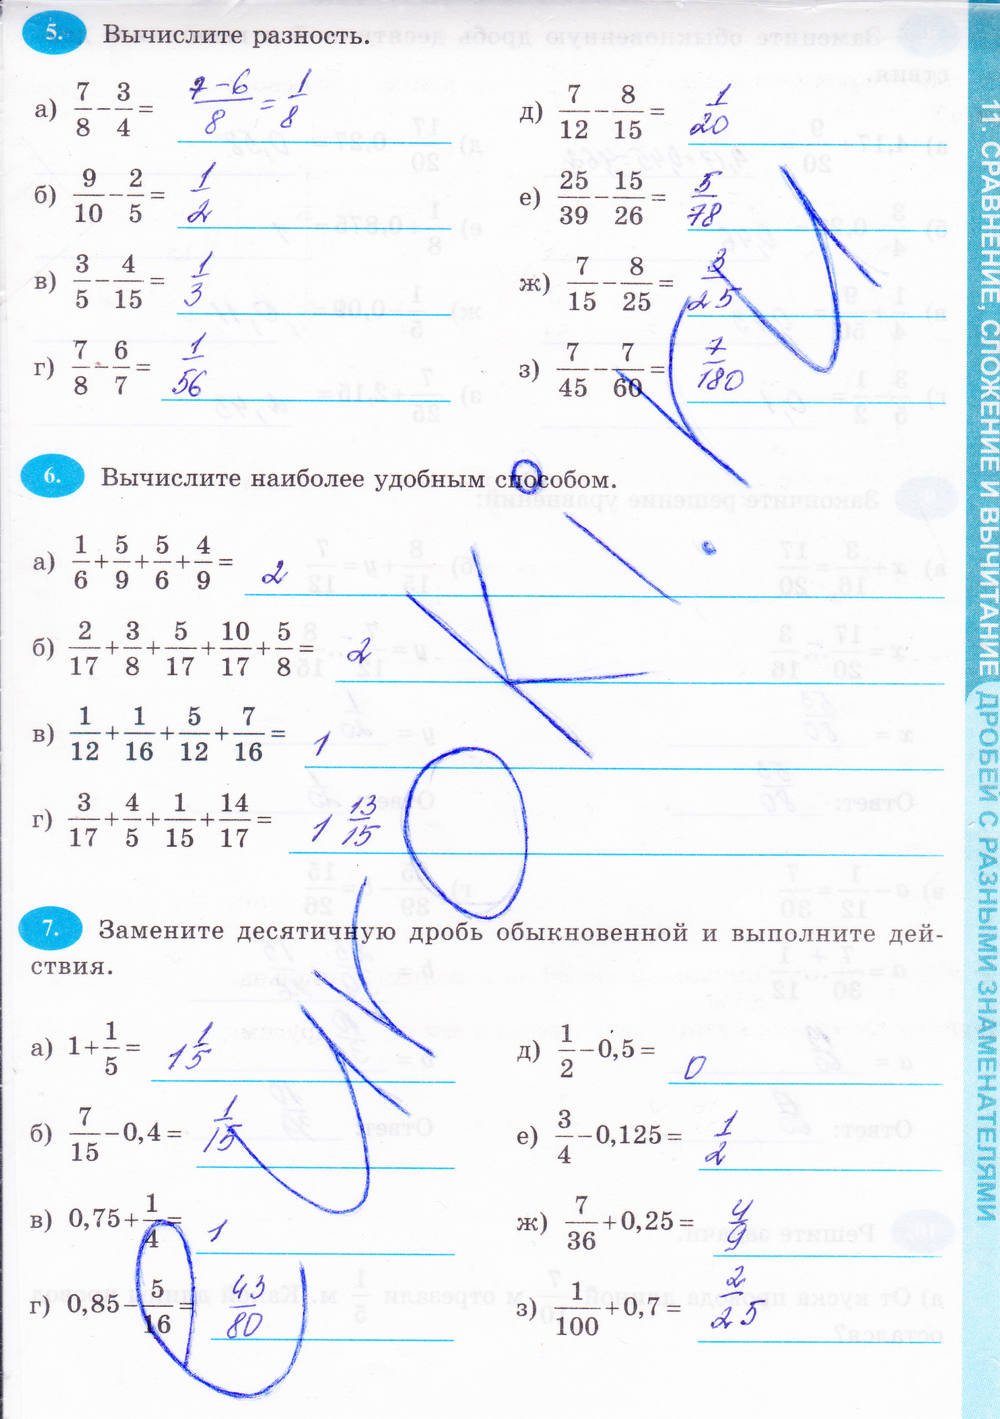 5. Вычислите разность.
а) 7/8 − 3/4 = 7−6/8 = 1/8
б) 9/10 − 2/5 = 1/2
в) 3/5 − 4/15 = 1/3
г) 7/8 − 6/7 = 1/56
д) 7/12 − 8/15 = 1/20
е) 25/39 − 15/26 = 5/78
ж) 7/15 − 8/25 = 3/25
з) 7/45 − 7/60 = 7/180
6. Вычислите наиболее удобным способом.
а) 1/6 + 5/9 + 5/6 + 4/9 = 2
б) 2/17 + 3/8 + 5/17 + 10/17 + 5/8 = 2
в) 1/12 + 1/16 + 5/12 + 7/16 = 1
г) 3/17 + 4/5 + 1/15 + 14/17 = 1 13/15
7. Замените десятичную дробь обыкновенной и выполните дей-
ствия.
а) 1 + 1/5 = 1 1/5
б) 7/15 − 0,4 = 1/15
в) 0,75 + 1/4 = 1
г) 0,85 − 5/16 = 43/80
д) 1/2 − 0,5 = 0
е) 3/4 − 0,125 = 1/2
ж) 7/36 + 0,25 = 4/9
з) 1/100 + 0,7 = 2/25
11. СРАВНЕНИЕ, СЛОЖЕНИЕ И ВЫЧИТАНИЕ ДРОБЕЙ С РАЗНЫМИ ЗНАМЕНАТЕЛЯМИ